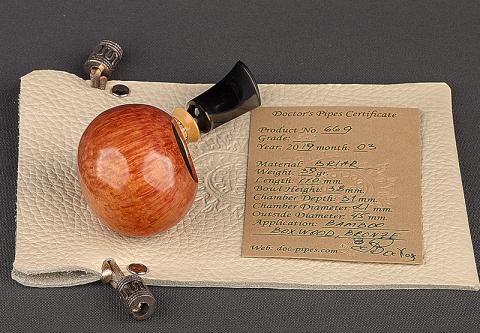 Doctor's Pipes Certificate
Product No. 669
Grade:
Year: 2019 month: 03
Material: BRIAR
Weight: 39 gr.
Length: 110 mm.
Bowl Height: 38 mm.
Chamber Depth: 31 mm.
Chamber Diameter: 21 mm.
Outside Diameter: 45 mm.
Application: BAMBOO
BOXWOOD, BRONZE
Web: doc-pipes.com